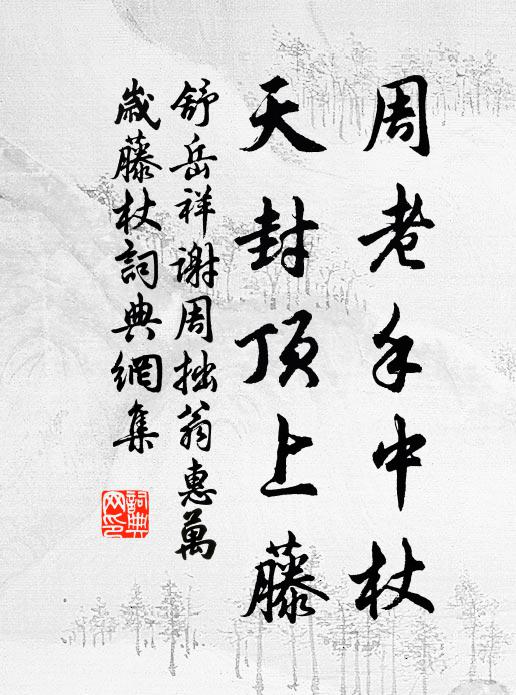 周老手中杖
天封顶上藤
舒岳祥谢周拙翁惠萬
歲藤杖詞典網集
詞典
网印